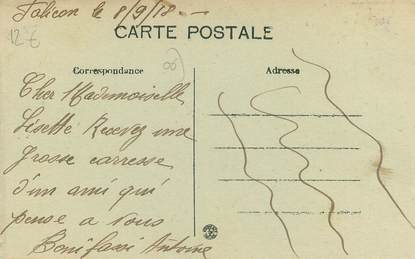 Falicon le 8/9/18 -
12€
CARTE POSTALE
Correspondance
Adresse
Cher Mademoiselle
Lisette Recevez une
grosse carresse
d'un ami qui
pense a vous
Bonifassi Antoine